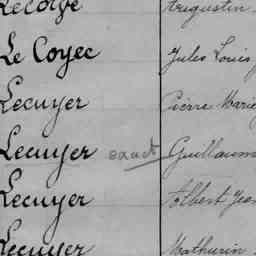 Augustin
Le Coyec Jules Louis
Lecuyer Pierre Marie
Lecuyer exact Guillaume
Lecuyer Albert Jean
Lecuyer Mathurin